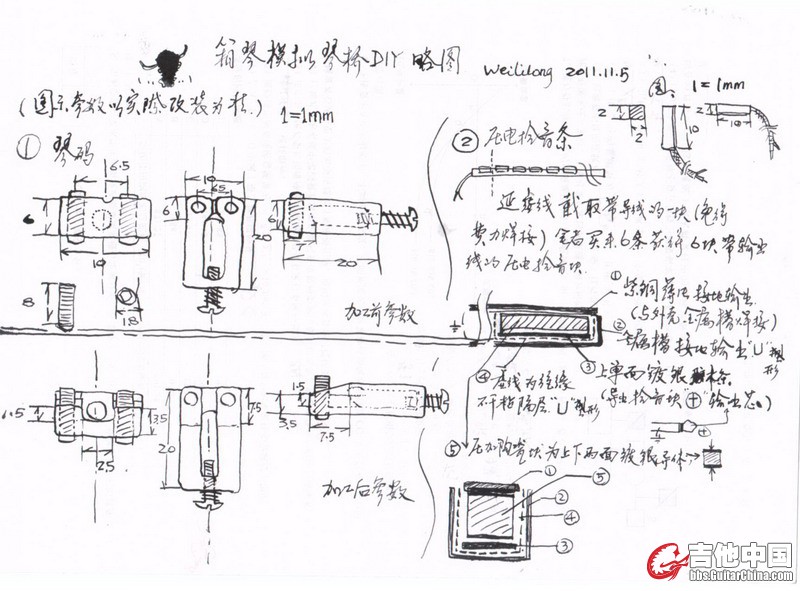 箱琴模拟琴桥DIY略图
Weililong 2011.11.5
(图示参数以实际改装为准.)
1=1mm
图:
1=1mm
2
2
10
2
10
① 琴码
6.5
6
19
8
1.8
19
6.5
6
20
6
7
20
加工前参数
② 压电拾音条
延虚线截取带导线的一块(免得
费力焊接)
买来6条获得6块带输出
线的压电拾音块.
① 紫铜薄片接地输出
(与外壳金属槽焊接)
②
金属槽接地输出"U"型
③ 上单面镀银
(导出拾音块"+"输出芯.)
④ 虚线为绝缘
不干胶隔层"U"型
⑤ 压电陶瓷块为上下两面镀银导体
+
①
⑤
②
④
③
1.5
3.5
2.5
20
7.5
1.5
3.5
7.5
加工后参数
吉他中国
bbs.GuitarChina.com